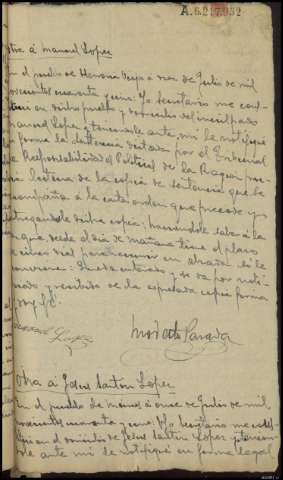 A.6.217.952
á Manuel Lopez
En el pueblo de a once de Julio de mil
novecientos cuarenta y uno: Yo Secretario me
en dicho pueblo y domicilio del inculpado
Manuel Lopez y teniendole ante mi le notifiqué
en forma la sentencia dictada por el Tribunal
de Responsabilidades Politicas de la Region
lectura de la copia de sentencia que se
acompaña a la carta orden que precede y
entregandole dicha copia, haciendole saber a la
que desde el dia de mañana tiene el plazo
de cinco dias para recurrir en alzada si le
conviene. Queda enterado y se da por noti-
ficado y recibido de la expresada copia firma
doy fé.
Manuel Lopez
Parada
Otra á Jesus Lopez
En el pueblo de a once de Julio de mil
novecientos cuarenta y uno: Yo Secretario me
en el domicilio de Jesus Lopez y tenien-
dole ante mi le notifiqué en forma legal